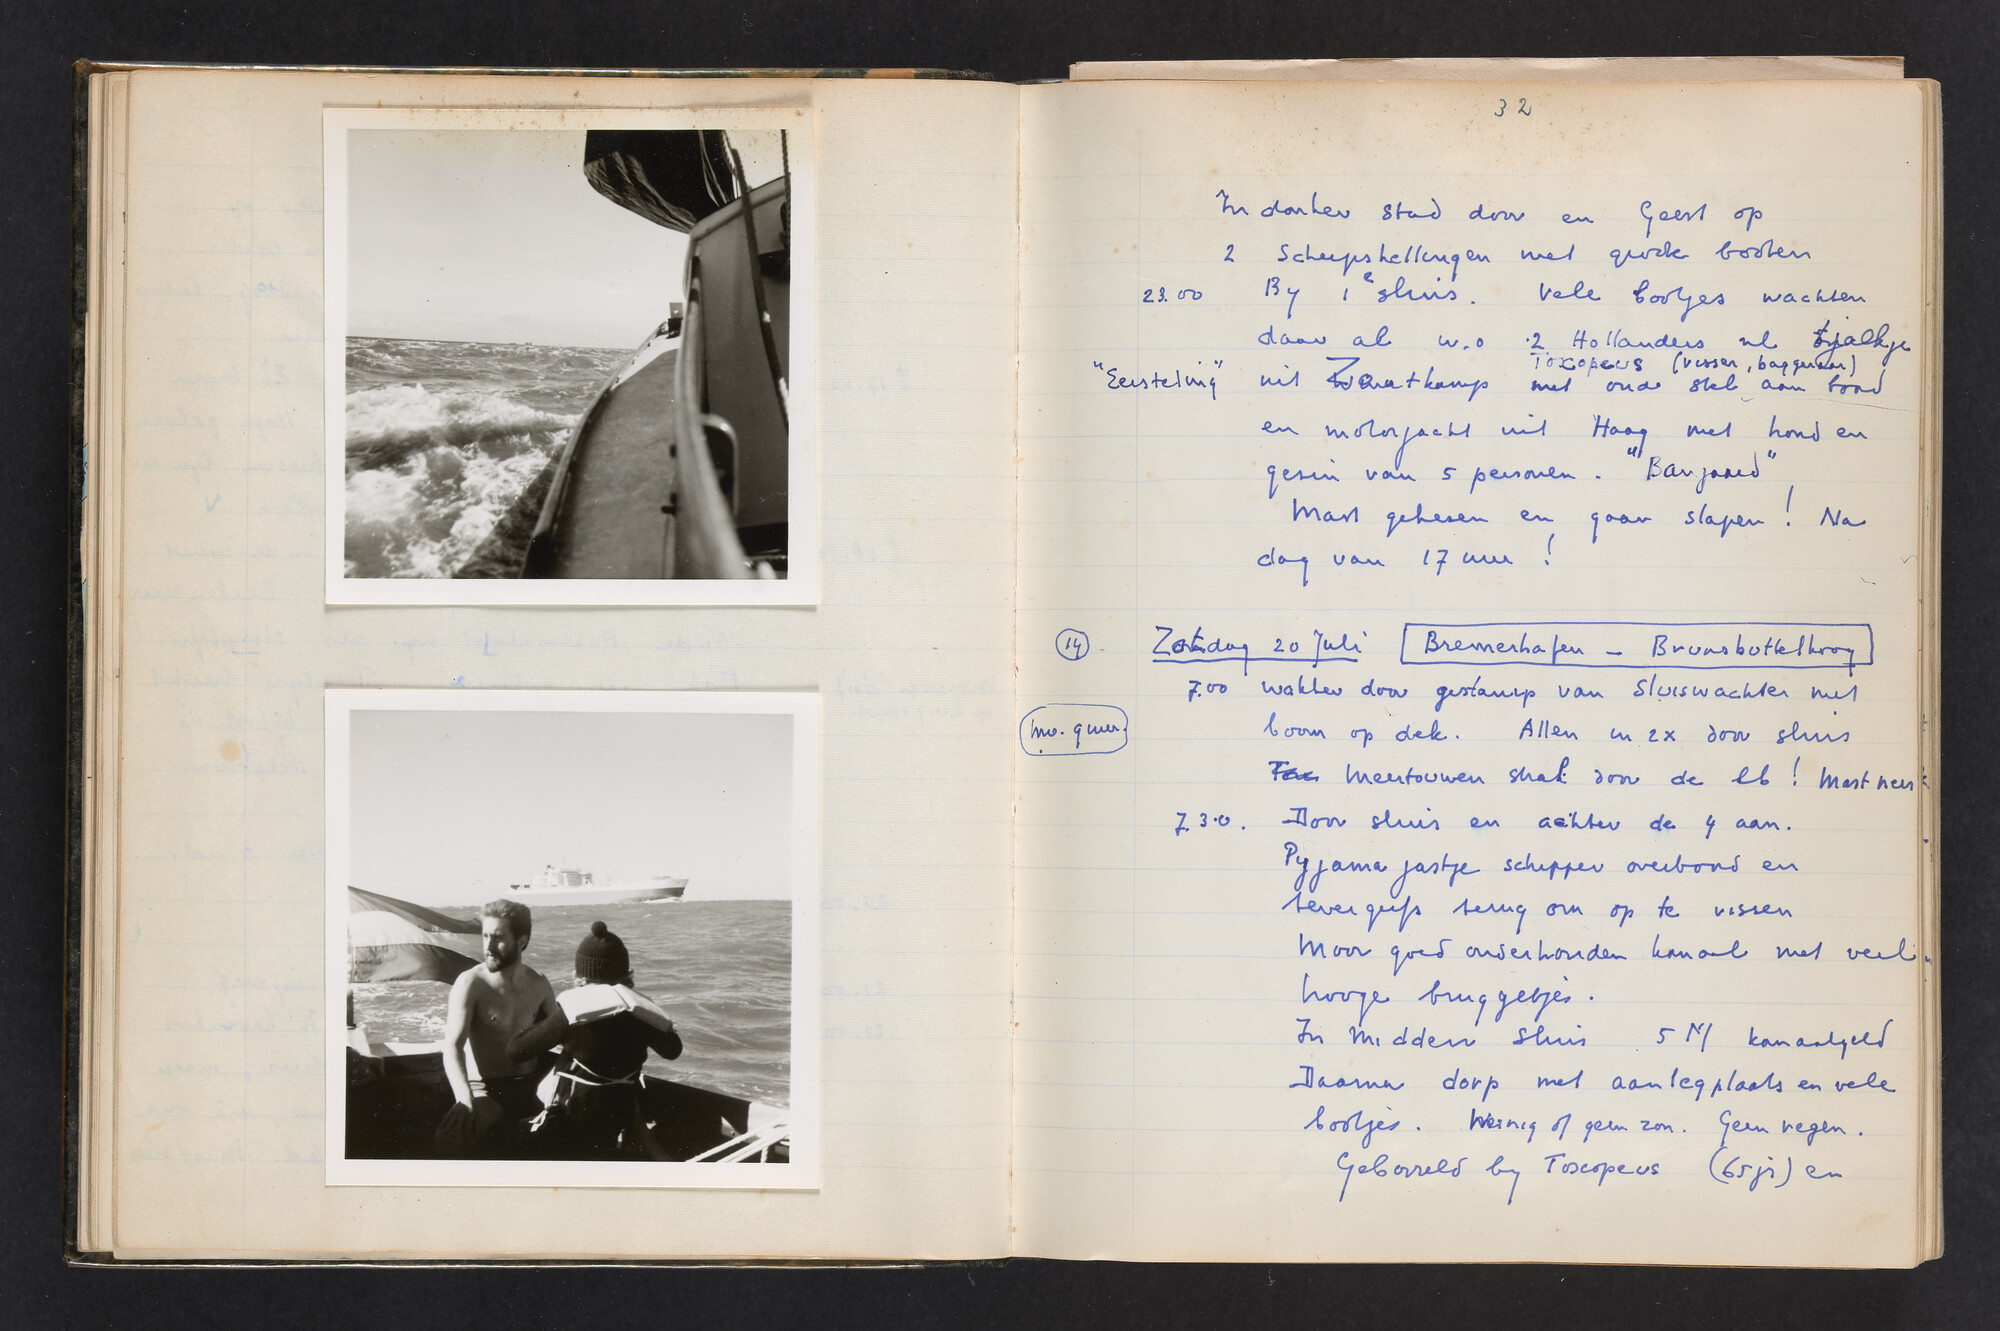 32
In donker stad door en Geest op
2 Scheepshellingen met grote boten
23.00 By 1e sluis. Vele bootjes wachten
daar al w.o 2 Hollanders nl tjalkje
Toxopeus (visser, baggeraar)
"Eersteling" uit Zoutkamp met oude stel aan boord
en motorjacht uit Haag met hond en
gezin van 5 personen. "Banjaard"
Mast gehesen en gaan slapen! Na
dag van 17 uur!
14 Zaterdag 20 Juli Bremerhafen - Brunsbuttelkoog
7.00 wakker door gestamp van Sluiswachter met
boom op dek. Allen in 2x door sluis
Meertouwen strak door de eb! Mast neer
7.30. Door sluis en achter de 4 aan.
Pyjama jastje schipper overboord en
tevergeefs terug om op te vissen
Mooi goed onderhouden kanaal met veel
hooge bruggetjes.
In Midden Sluis 5 M kanaalgeld
Daarna dorp met aanlegplaats en vele
bootjes. Weinig of geen zon. Geen regen.
Geborreld by Toxopeus (65jr) en